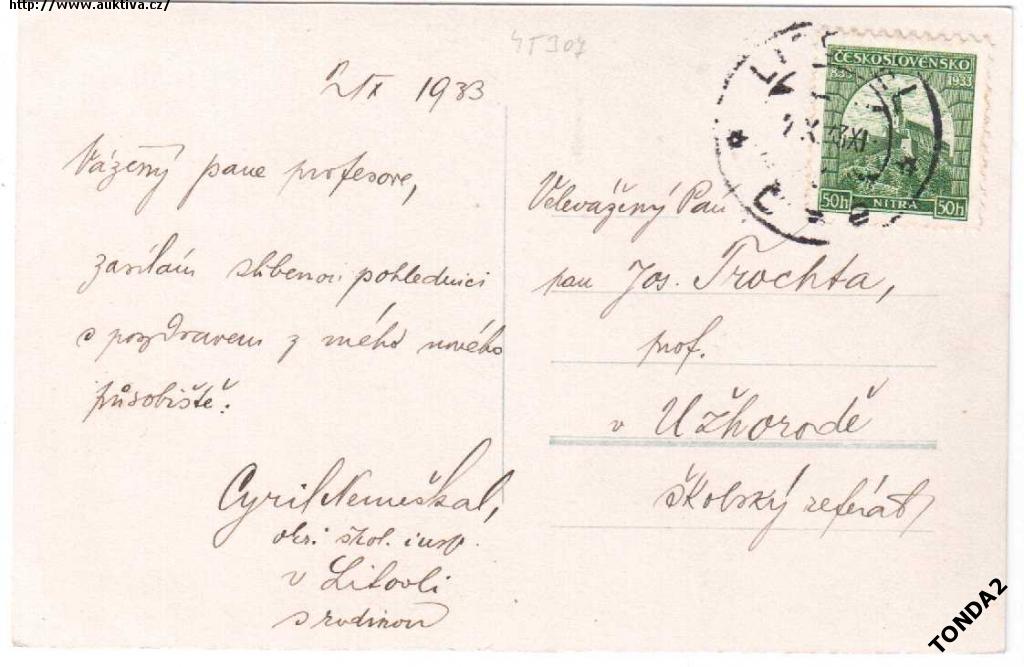 http://www.auktiva.cz/
1933
Vážený pane profesore,
zasílám slíbenou pohlednici
s pozdravem z mého nového
působiště.
Cyril Nemeškal,
okr. škol. insp.
v Litovli
s rodinou
ČESKOSLOVENSKO
1933
50h NITRA 50h
Velevážený Pan
pan Jos. Trochta,
prof.
v Užhorodě
školský referát
TONDA2